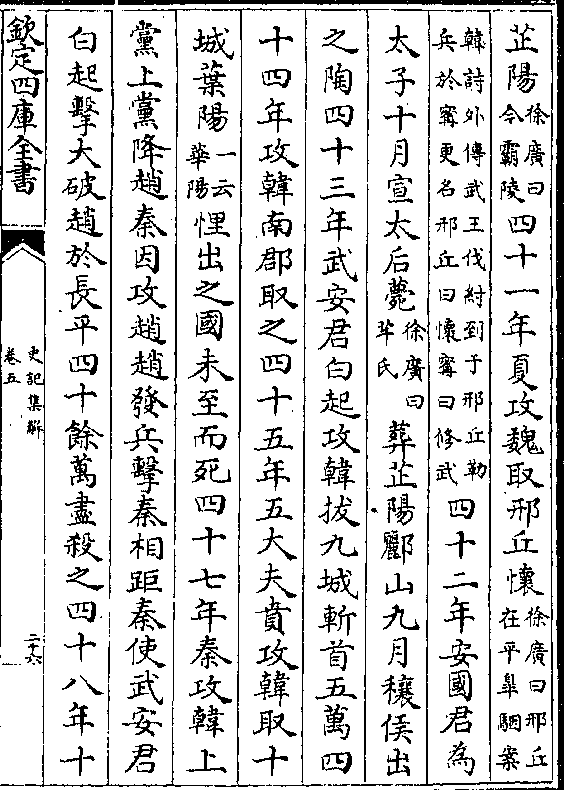 芷陽徐廣曰今霸陵四十一年夏攻魏取邢丘懷徐廣曰邢丘在平臯駰案
韓詩外傳武王伐紂到于邢丘勒兵於甯更名邢丘曰懷甯曰修武四十二年安國君為
太子十月宣太后薨徐廣曰芈氏葬芷陽酈山九月穰侯出
之陶四十三年武安君白起攻韓拔九城斬首五萬四
十四年攻韓南郡取之四十五年五大夫賁攻韓取十
城葉陽一云華陽悝出之國未至而死四十七年秦攻韓上
黨上黨降趙秦因攻趙趙發兵擊秦相距秦使武安君
白起擊大破趙於長平四十餘萬盡殺之四十八年十
欽定四庫全書
史記集解
卷五
二十六